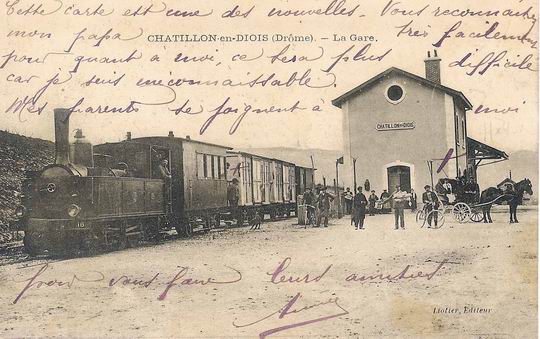 Cette carte est une des nouvelles. Vous reconnaitrez
mon papa très facilement
CHATILLON-en-DIOIS (Drôme). - La Gare.
pour quant à moi, ce sera plus difficile
car je suis méconnaissable.
Mes parents se joignent à moi
CHATILLON-EN-DIOIS
16
pour vous faire leurs amitiés
Liotier, Editeur